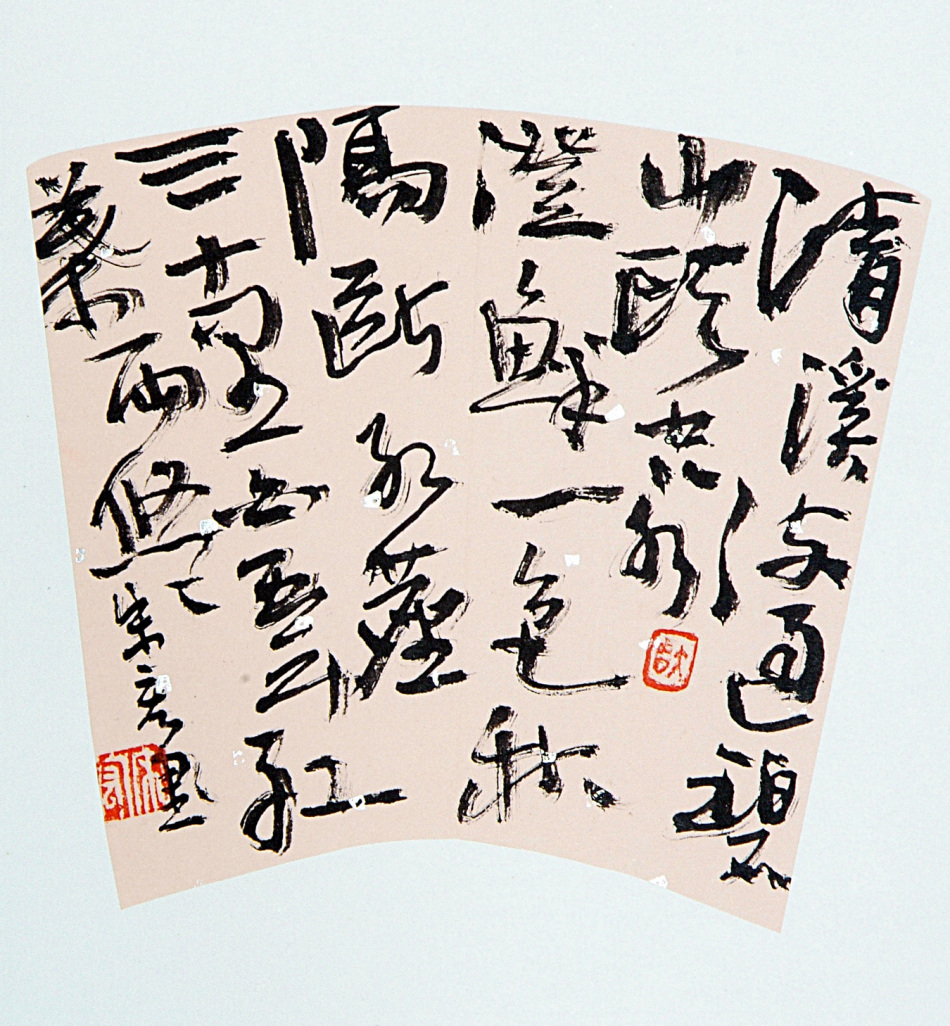 清溪流過碧
山頭空水
澄鮮一色秋
隔斷紅塵
三十里白雲紅
葉兩悠々朱